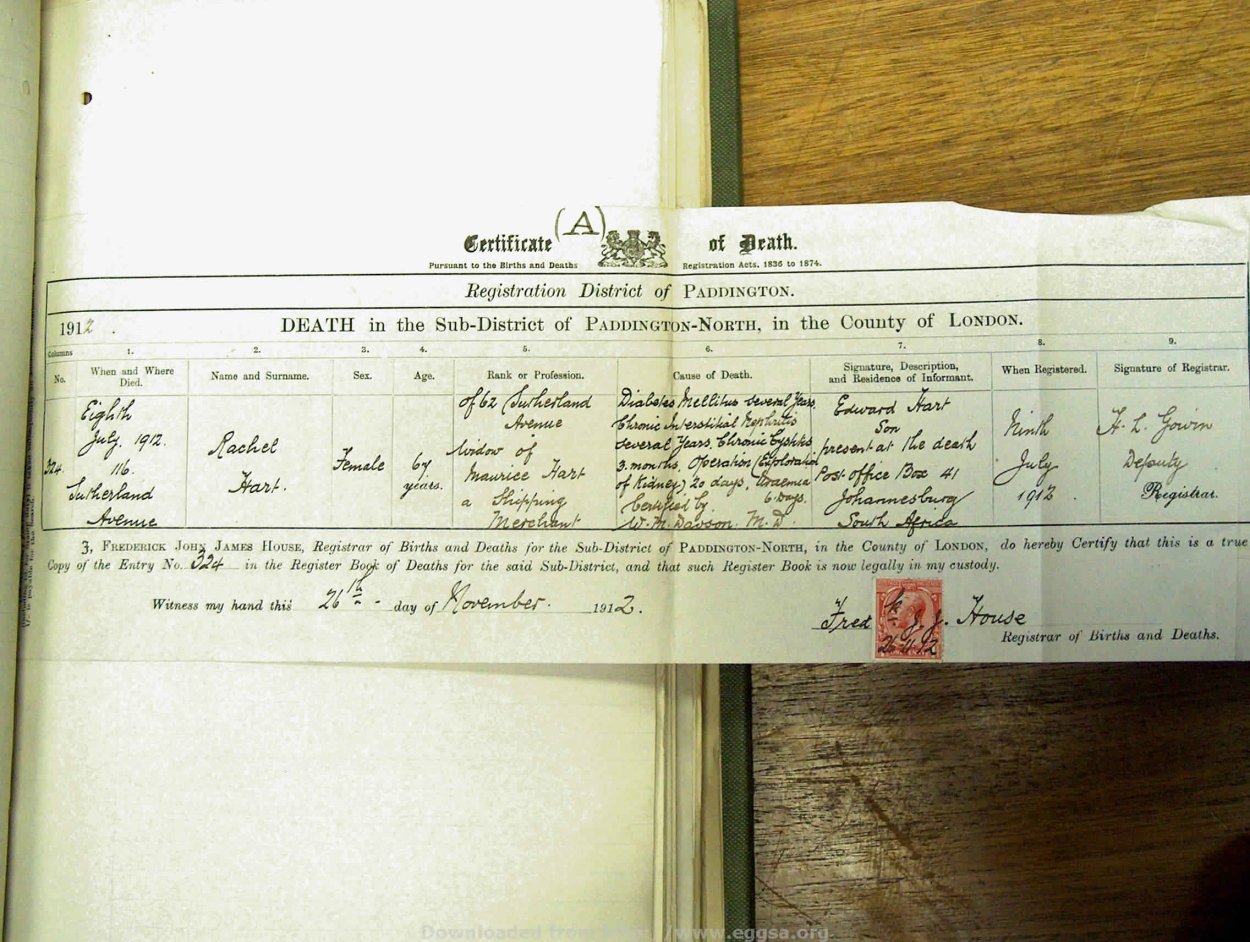 (A)
Certificate of Death.
Pursuant to the Births and Deaths Registration Acts, 1836 to 1874.
Registration District of PADDINGTON.
1912. DEATH in the Sub-District of PADDINGTON-NORTH, in the County of LONDON.
Columns 1. 2. 3. 4. 5. 6. 7. 8. 9.
No.
When and Where
Died.
Name and Surname.
Sex.
Age.
Rank or Profession.
Cause of Death.
Signature, Description,
and Residence of Informant.
When Registered.
Signature of Registrar.
324
Eighth
July. 1912.
116.
Sutherland
Avenue
Rachel
Hart.
Female
67
years.
of 62 Sutherland
Avenue
Widow of
Maurice Hart
a Shipping
Merchant
Diabetes Mellitus several Years,
Chronic Interstitial Nephritis
several Years. Chronic Cystitis
3. months. Operation (Exploration
of Kidney) 20 days, Uraemia
6 days.
Certified by
W. M. Davson. M.D.
Edward Hart
Son
present at the death
Post Office Box 41
Johannesburg
South Africa
Ninth
July
1912.
H. L. Gowin
Deputy
Registrar.
I, FREDERICK JOHN JAMES HOUSE, Registrar of Births and Deaths for the Sub-District of PADDINGTON-NORTH, in the County of LONDON, do hereby Certify that this is a true
Copy of the Entry No. 324 in the Register Book of Deaths for the said Sub-District, and that such Register Book is now legally in my custody.
Witness my hand this 26th day of November. 1912.
Fred k J. J. House
26.11.12
Registrar of Births and Deaths.
Downloaded from http://www.eggsa.org